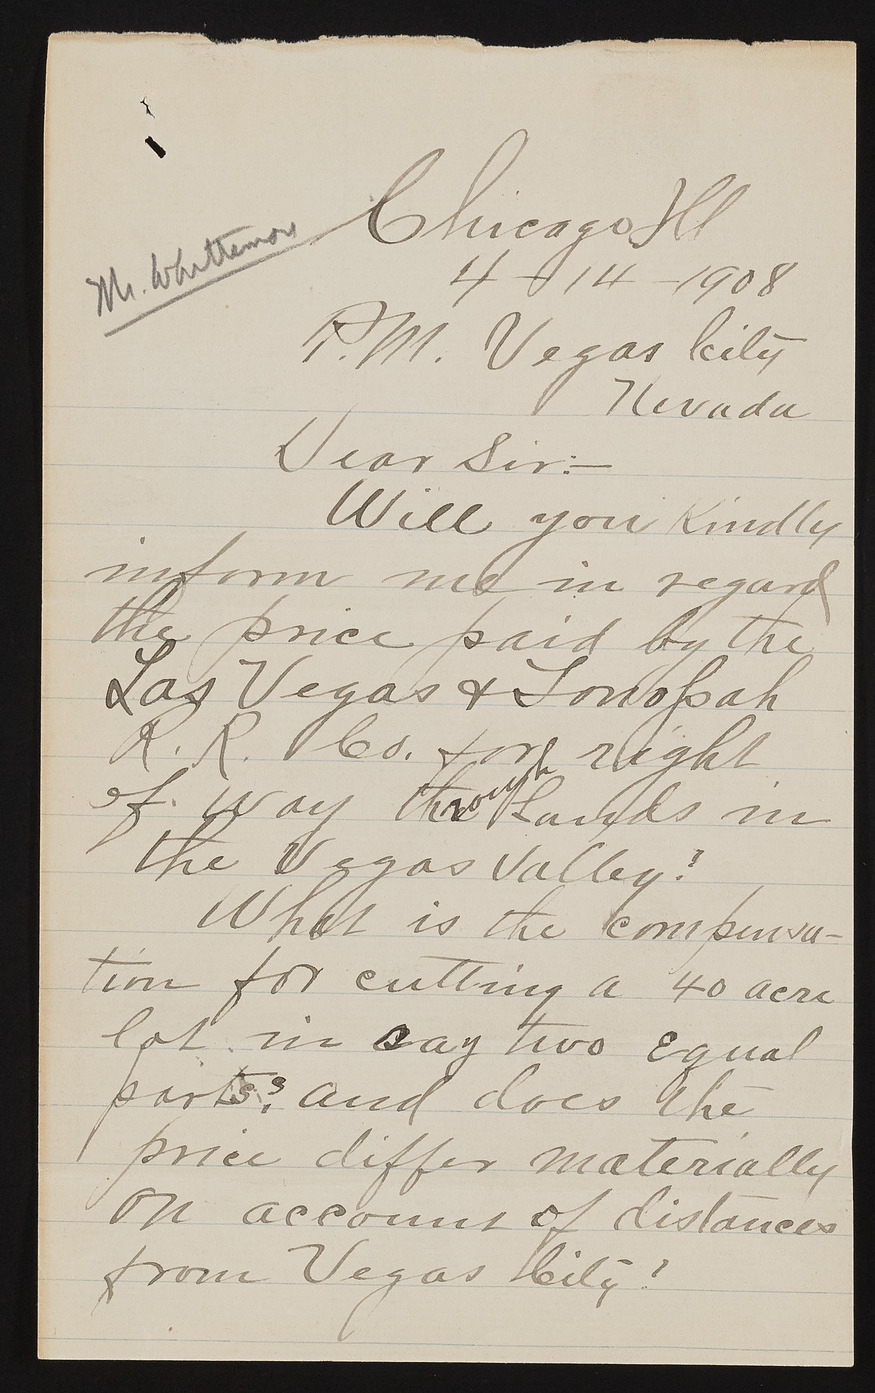 Chicago Ill
Mr. Whittemore
4 - 14 - 1908
P.M. Vegas City
Nevada
Dear Sir:-
Will you kindly
inform me in regard
the price paid by the
Las Vegas & Tonopah
R. R. Co. for right
of way through Lands in
the Vegas Valley?
What is the compensa-
tion for cutting a 40 acre
lot in say two equal
parts? and does the
price differ materially
on account of distances
from Vegas City?